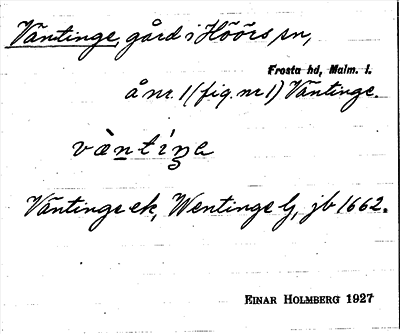 Väntinge, gård i Höörs sn,
Frosta hd, Malm. l.
å nr. 1 (fig. nr 1) Väntinge.
vèntiŋe
Väntinge ek, Wentinge G, jb 1662.
EINAR HOLMBERG 1927